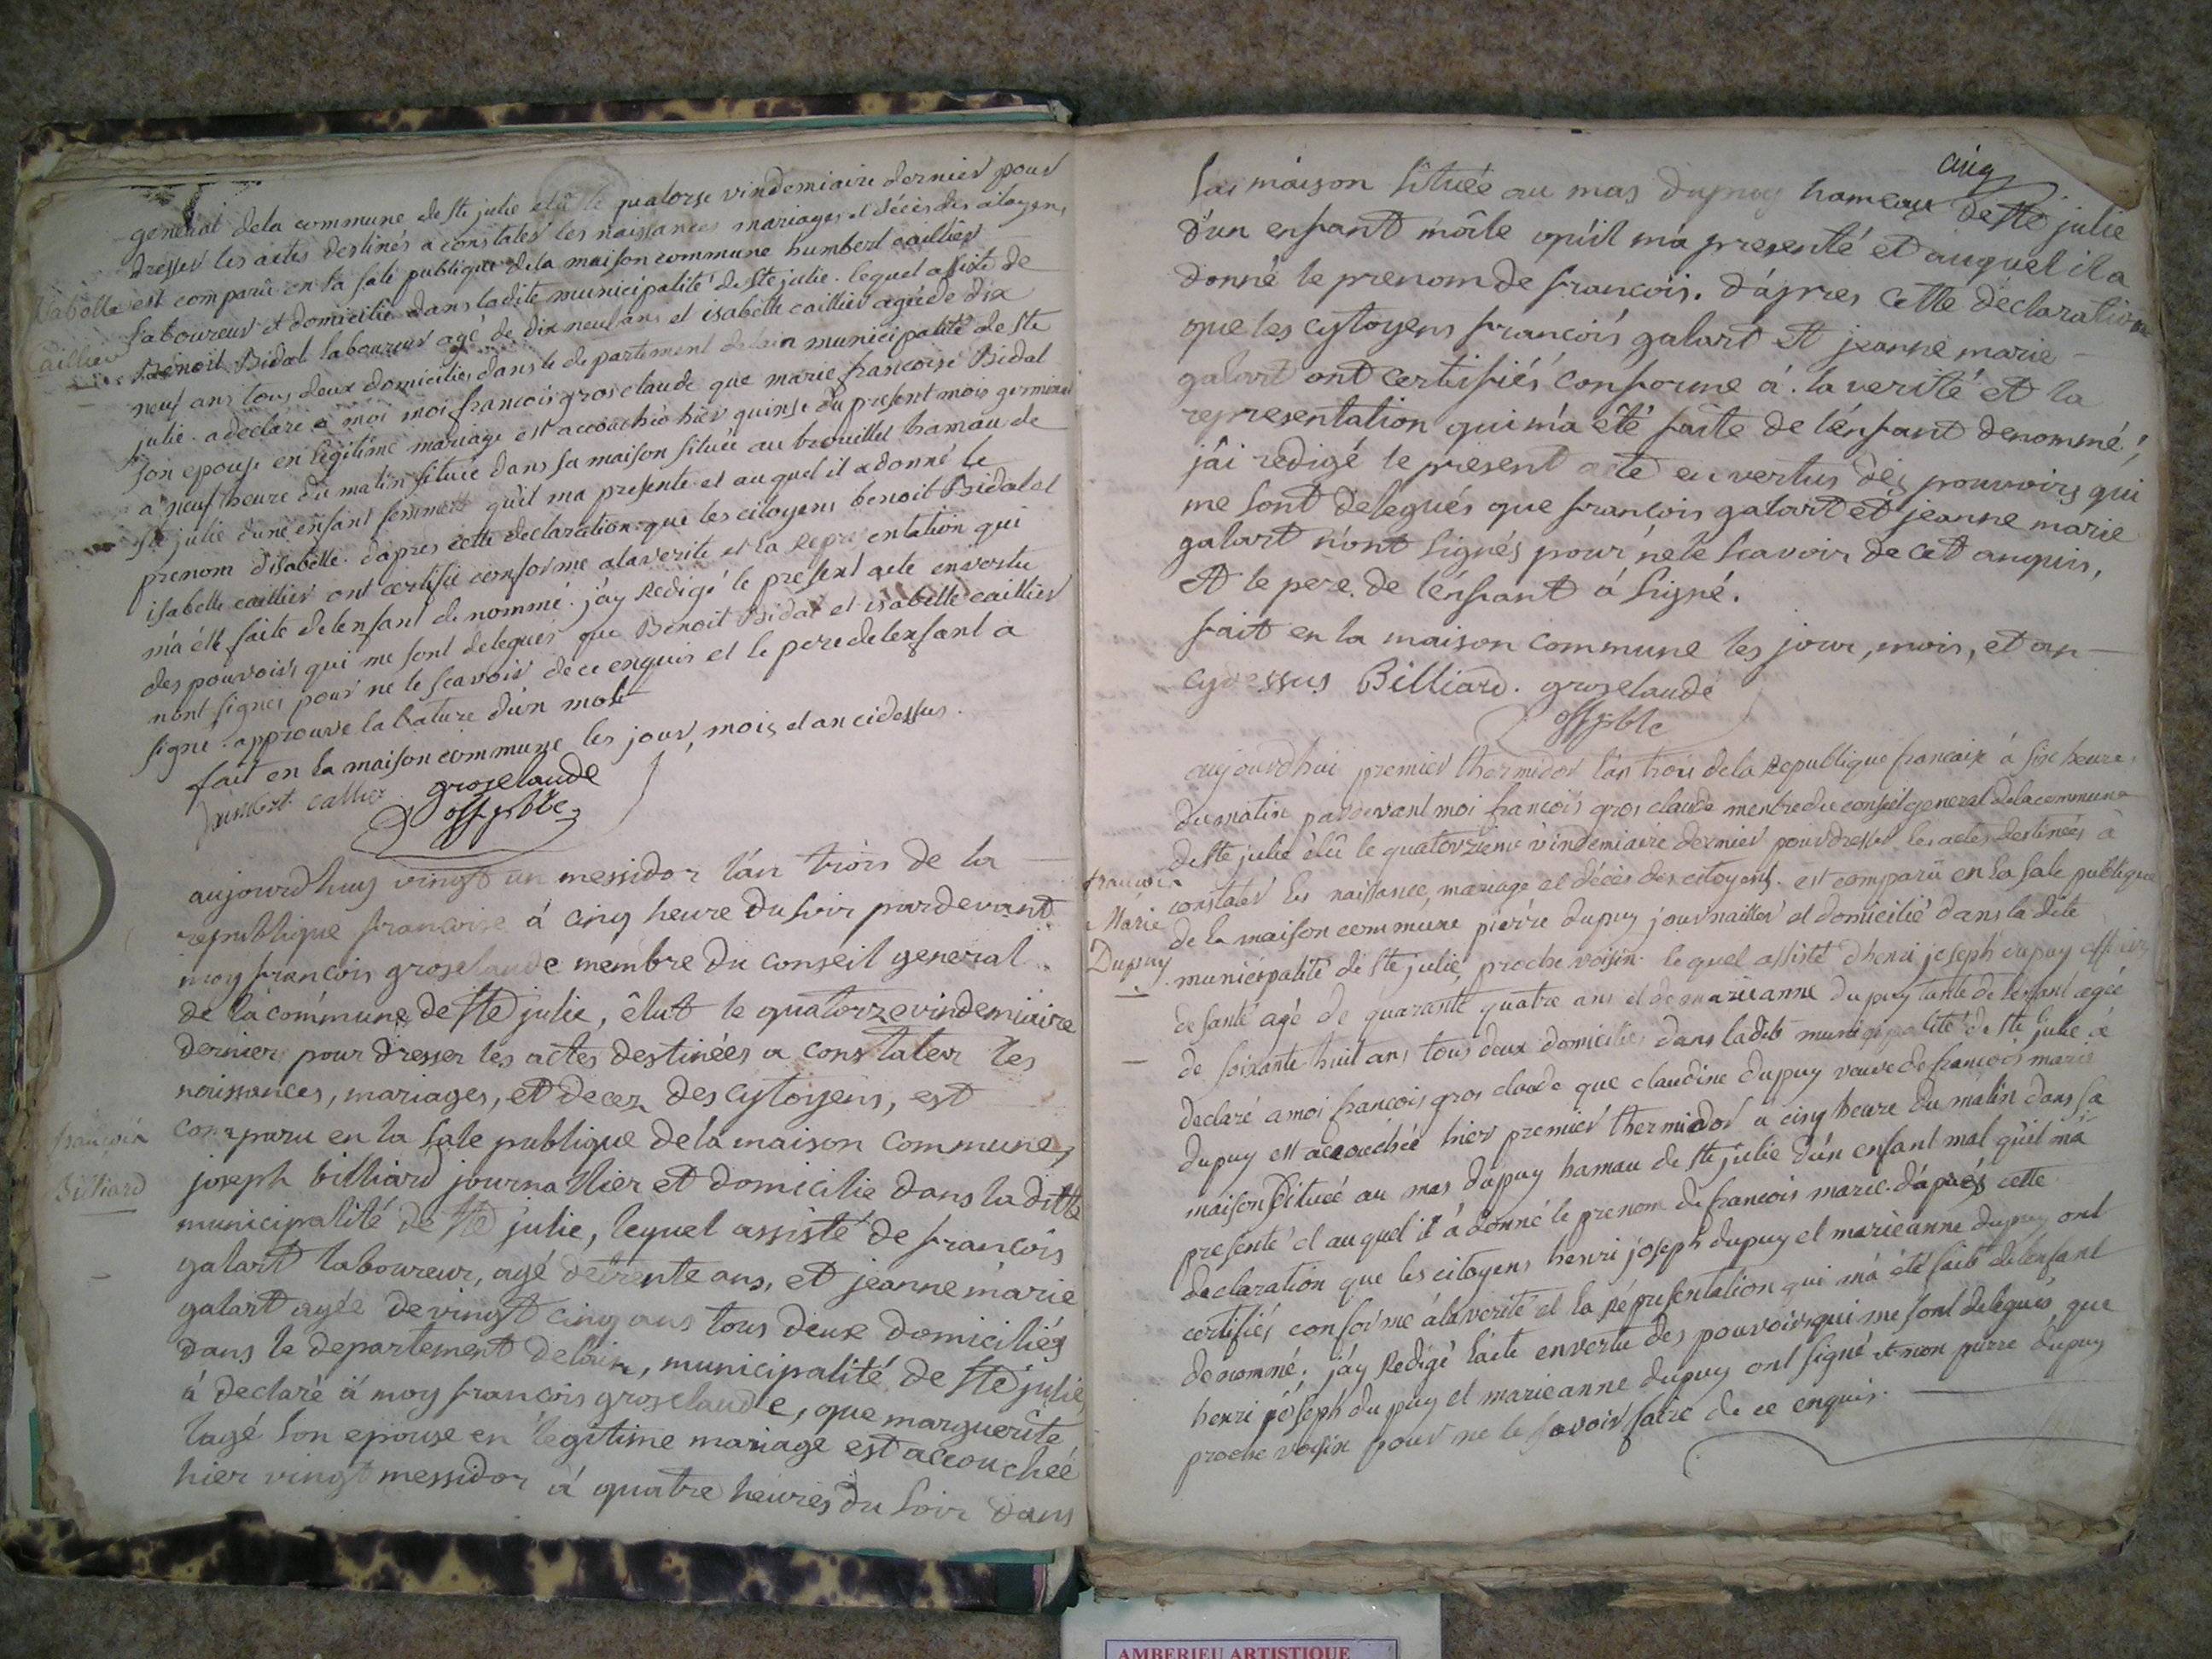 general dela commune de ste julie elû le quatorse vindemiaire dernier pour
dresser les actes destinés a constater les naissances mariages et décès des citoyens
est comparû en la sale publique dela maison commune humbert caillier
laboureur et domicilié dans ladite municipalité de ste julie. lequel assisté de
Benoit Bidal laboureur agé de dix neuf ans et isabelle caillier agéé de dix
neuf ans tous deux domiciliés dans le departement delain municipalité de ste
julie. a déclaré a moi moi francois grosclaude que marie francoise Bidal
son epouse en légitime mariage est accouchéé hier quinse du present mois germinal
a neuf heure du matin située dans sa maison située au brouillet hamau de
ste julie d'une enfant femmelle qu'il ma presenté et auquel il a donné le
prenom d'isabelle. dapres cette declaration que les citoyens benoit Bidal et
isabelle caillier ont certifié conforme a la verite et la representation qui
m'a été faite delenfant denommé. j'ay Redigé le present acte en vertu
des pouvoirs qui me sont delegués que Benoit Bidal et isabelle caillier
nont signés pour ne le scavoir de ce enquis et le pere delenfant a
signé. approuve la rature d'un mot
fait en la maison commune les jour, mois et an cidessus.
humbert callier groselaude
off. pble
isabelle
caillier
aujourdhuy vingt un messidor l'an trois de la
republique francoise à cinq heure du soir pardevant
moy francois groselaude membre du conseil general
de la commune de Ste julie, êlut le quatorze vindemiaire
dernier pour dresser les actes destinées a constater les
naissances, mariages, et decez des cytoyens, est
comparu en la sale publique dela maison commune,
joseph billiard journallier et domicilié dans la ditte
municipalité de Ste julie, lequel assisté de francois
galart laboureur, agé de trente ans, et jeanne marie
galart agée de vingt cinq ans tous deux domiciliés
dans le departement de lain, municipalité de Ste julie
à declaré à moy francois groselaude, que marguerite
lagé son epouse en legitime mariage est accouchéé
hier vingt messidor à quatre heures du soir dans
francois
Billiard
cinq
sa maison situéé au mas dupuy hameau de Ste julie
d'un enfant mâle qu'il m'a presenté et auquel il a
donné le prenom de francois. d'apres cette declaration
que les cytoyens francois galart et jeanne marie
galart ont certifiés conforme à la verité et la
representation qui m'a êté faite de l'enfant denommé,
j'ai redigé le present acte en vertus des pouvoirs qui
me sont delegués que francois galart et jeanne marie
galart n'ont signés pour ne le scavoir de cet anquis,
et le pere de l'enfant à signé.
fait en la maison commune les jour, mois, et an
cydessus Billiard. groselaude
off pble
aujourdhui premier thermidor lan trois dela Republique francaise à six heure
du matin pardevant moi francois gros claude menbre du conseil general dela commune
de Ste julie élû le quatorzieme vindemiaire dernier pour dresser les actes destinées à
constater les naissance, mariage et décès des citoyens. est comparû en la sale publique
de la maison commune pierre dupuy journailler et domicilié dans la dite
municipalité de ste julie, proche voisin. lequel assisté d'henri joseph dupuy officier
de santé agé de quarante quatre ans et de marieanne dupuy tante de lenfant agéé
de soixante huit ans tous deux domiciliés dans ladite municipalité de ste julie a
declaré a moi francois gros claude que claudine dupuy veuve de francois marie
dupuy est accouchéé hier premier thermidor a cinq heure du matin dans sa
maison situéé au mas dupuy hamau de ste julie d'un enfant mal qu'il m'a
presenté et auquel il à donné le prenom de francois marie. d'après cette
declaration que les citoyens henri joseph dupuy et marieanne dupuy ont
certifiés conforme à la verité et la representation qui m'a été faite de lenfant
denommé. j'ay Redigé l'acte en vertu des pouvoirs qui me sont delegués que
henri joseph dupuy et marieanne dupuy ont signé et non pierre dupuy
proche voisin pour ne le savoir faire de ce enquis.
francois
Marie
Dupuy
AMBERIEU ARTISTIQUE